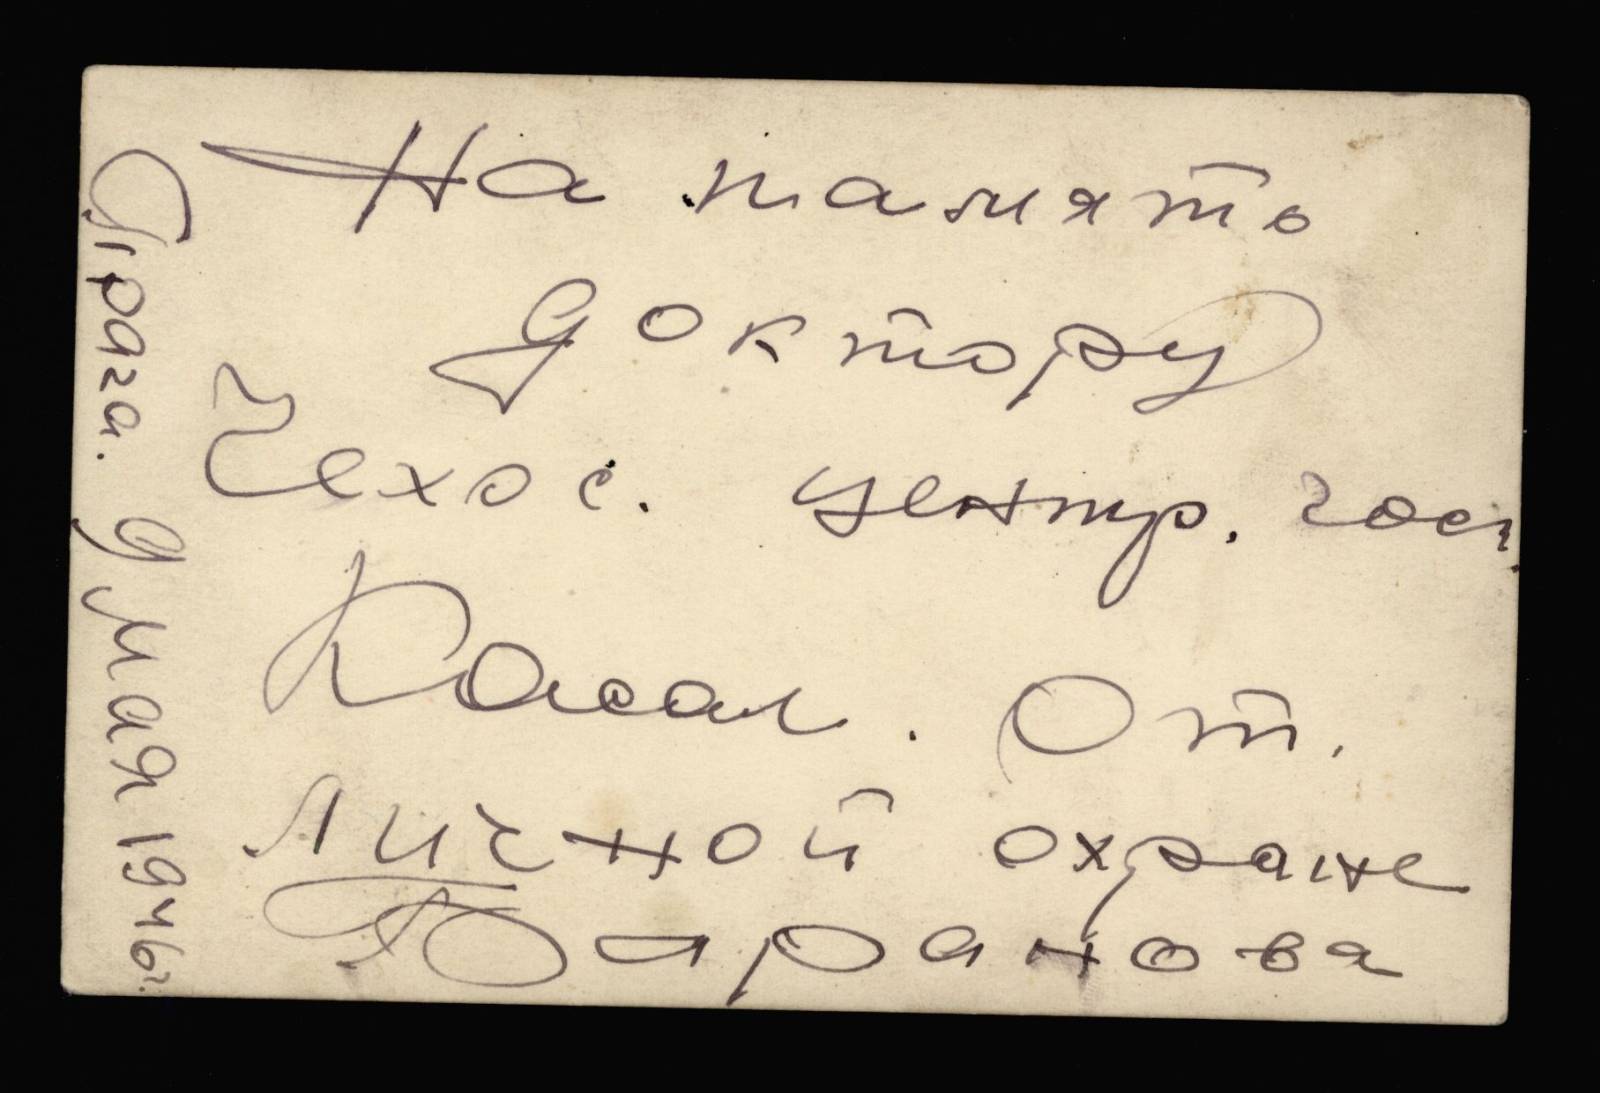 На память
доктору
Чехос. центр. госп.
От.
личной охране
Баранова
Прага. 9 мая 1946 г.